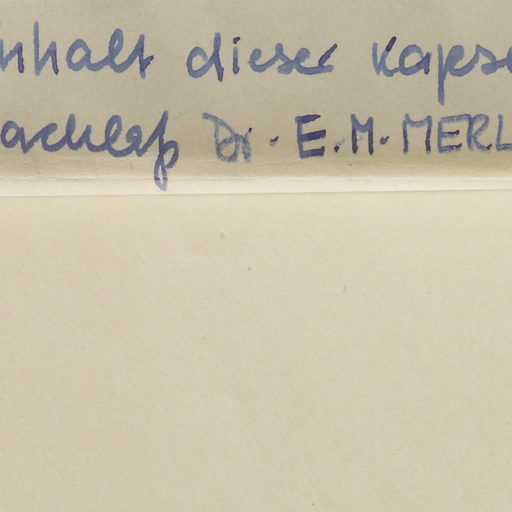 nhalt dieser Kapse
achlaß Dr. E.M. MERL